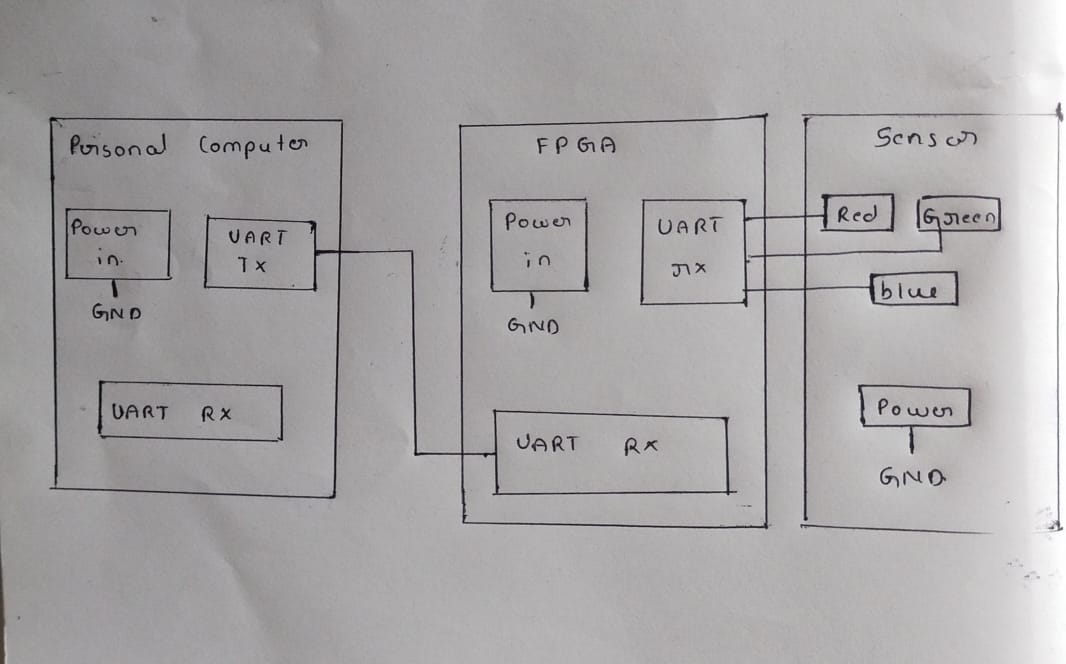 Personal Computer
Power
in.
GND
UART
TX
UART RX
FPGA
Power
in
GND
UART
rx
UART RX
Sensor
Red
Green
blue
Power
GND